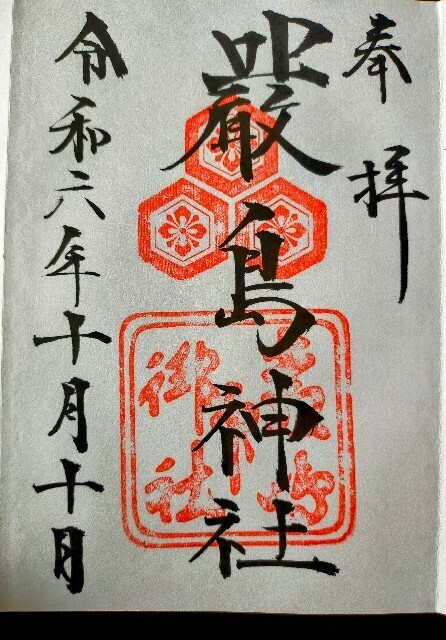 奉拝
嚴島神社
令和六年十月十日